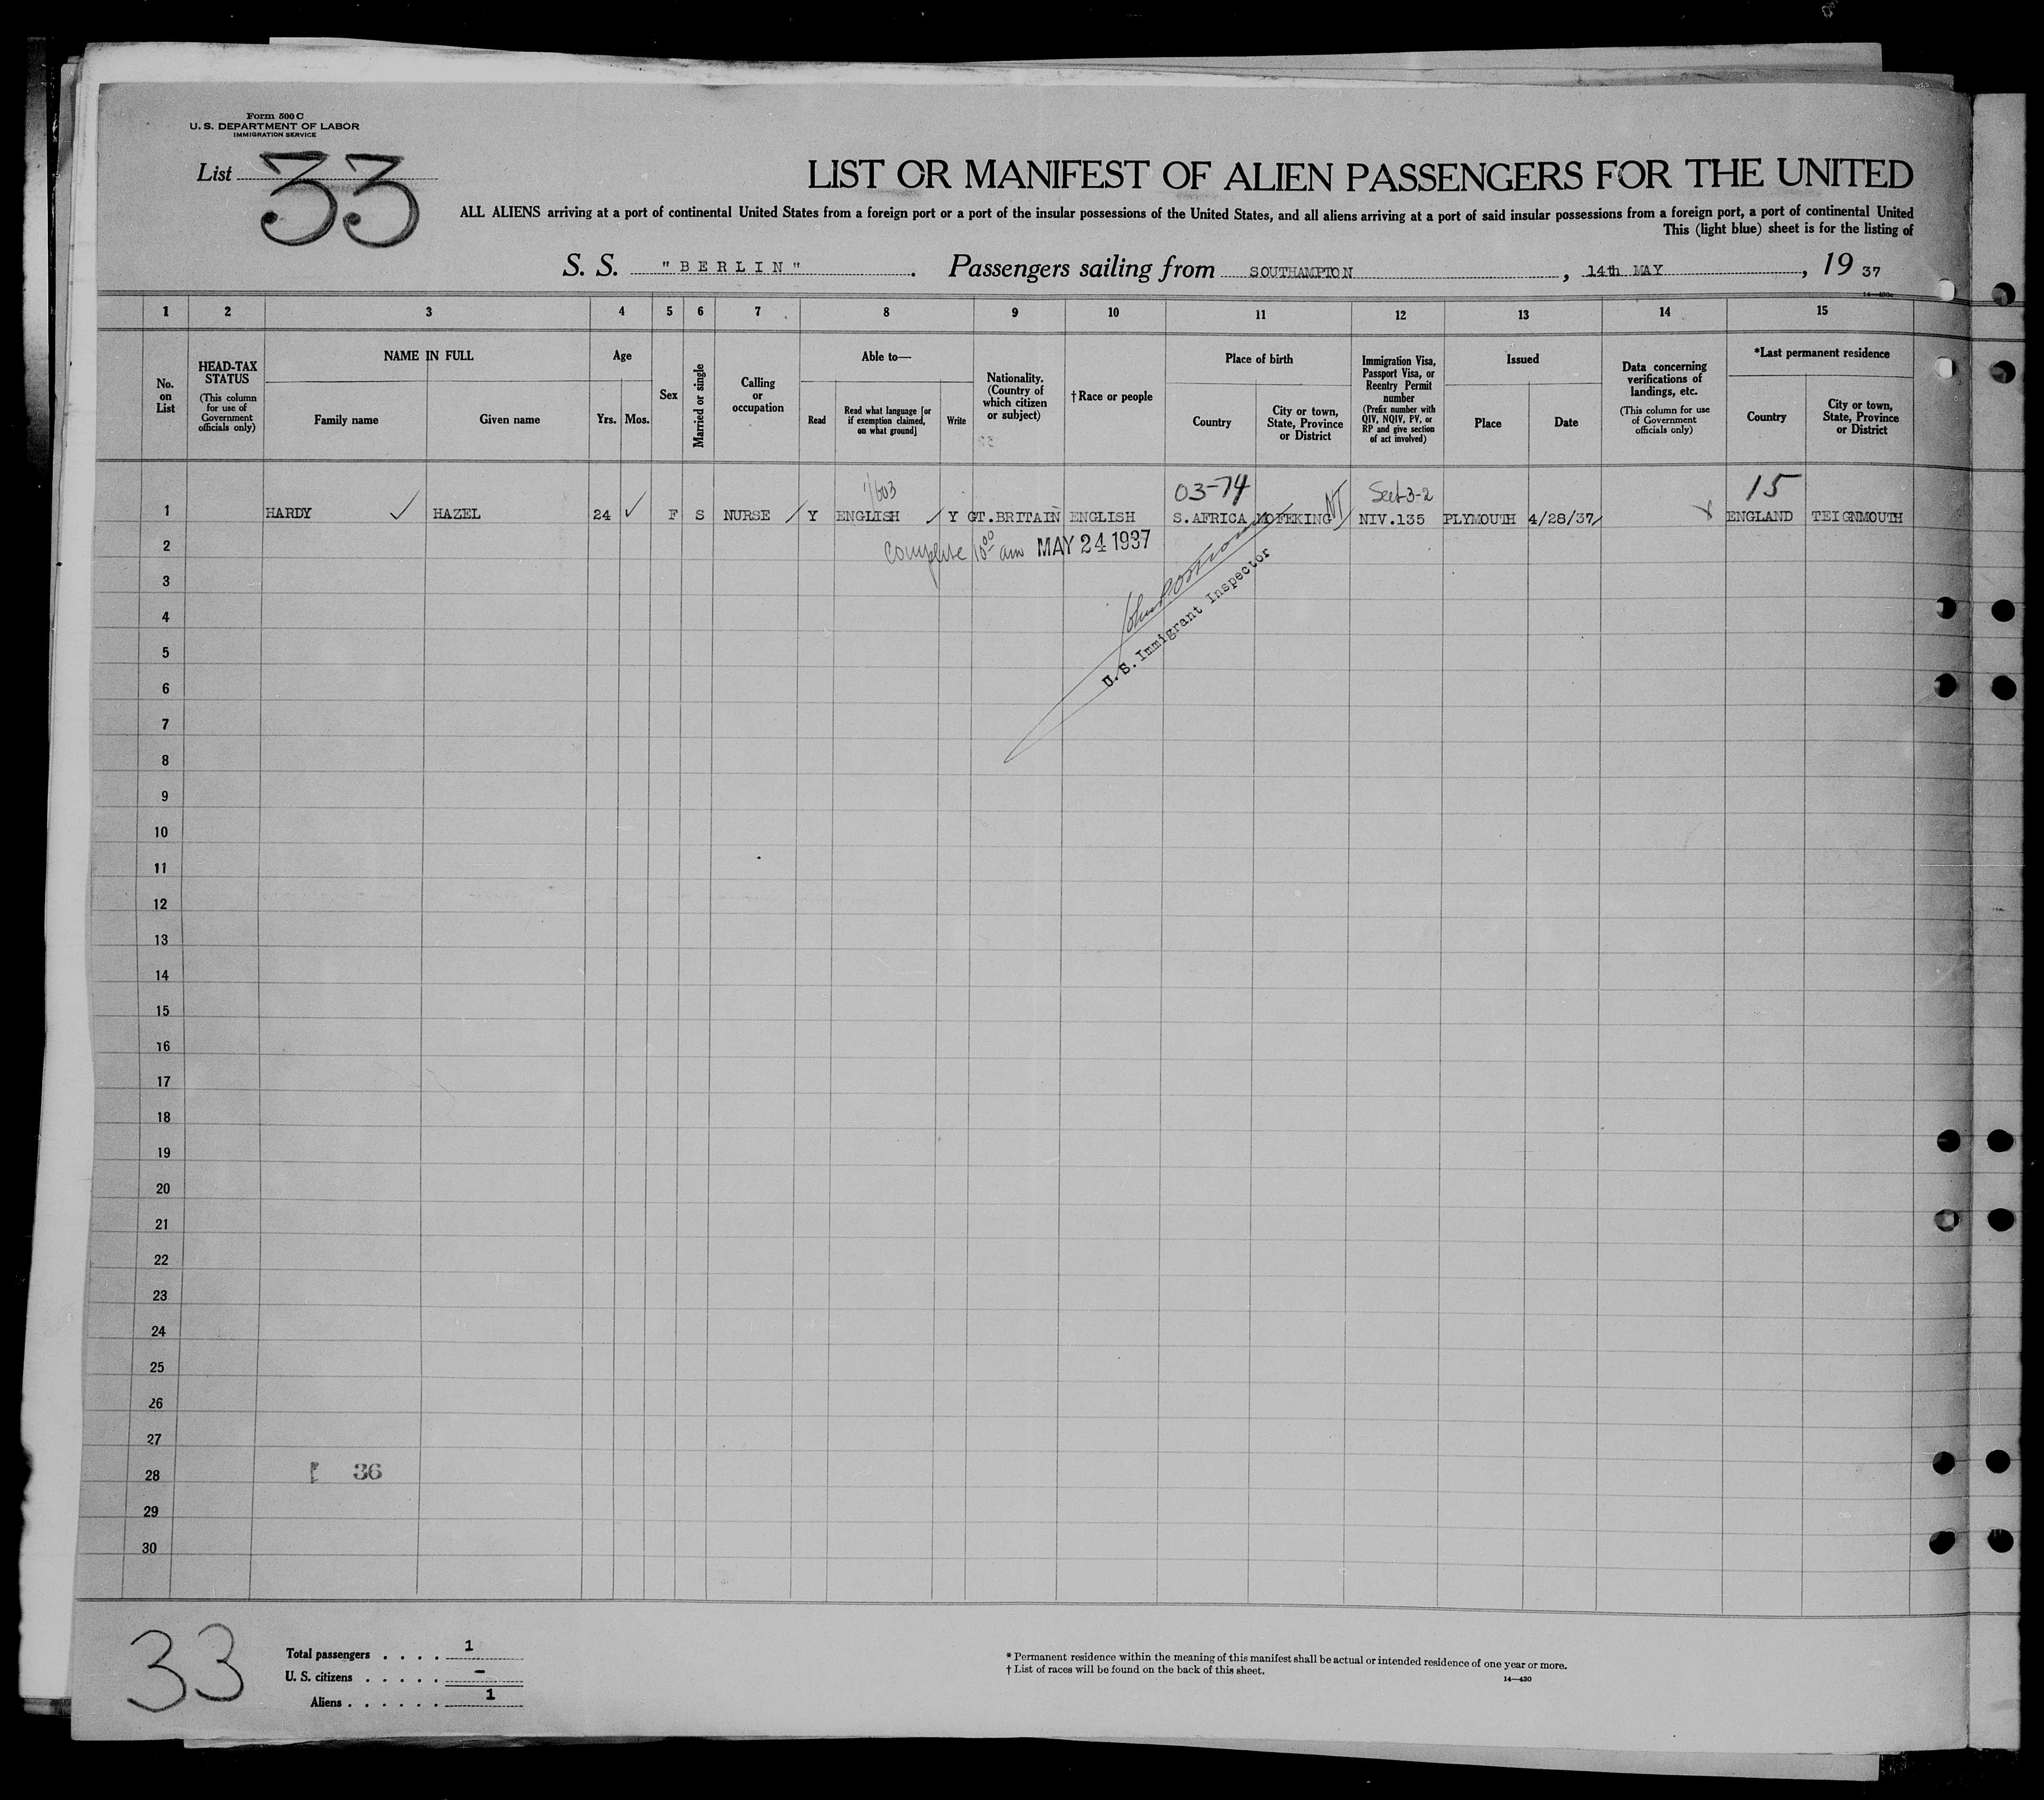 Form 500 C
U. S. DEPARTMENT OF LABOR
IMMIGRATION SERVICE
List 33
LIST OR MANIFEST OF ALIEN PASSENGERS FOR THE UNITED
ALL ALIENS arriving at a port of continental United States from a foreign port or a port of the insular possessions of the United States, and all aliens arriving at a port of said insular possessions from a foreign port, a port of continental United
This (light blue) sheet is for the listing of
S. S. "BERLIN" . Passengers sailing from SOUTHAMPTON , 14th MAY , 19 37
1 2 3 4 5 6 7 8 9 10 11 12 13 14 15
No. on List
HEAD-TAX STATUS (This column for use of Government officials only)
NAME IN FULL
Family name
Given name
Age
Yrs. Mos.
Sex
Married or single
Calling or occupation
Able to—
Read
Read what language [or if exemption claimed, on what ground]
Write
Nationality. (Country of which citizen or subject)
† Race or people
Place of birth
Country
City or town, State, Province or District
Immigration Visa, Passport Visa, or Reentry Permit number (Prefix number with QIV, NQIV, PV, or RP and give section of act involved)
Issued
Place
Date
Data concerning verifications of landings, etc. (This column for use of Government officials only)
*Last permanent residence
Country
City or town, State, Province or District
03-74 Sect 3-2 15
1 HARDY HAZEL 24 F S NURSE Y ENGLISH Y GT.BRITAIN ENGLISH S.AFRICA MOFEKING NIV.135 PLYMOUTH 4/28/37 ENGLAND TEIGNMOUTH
2 Complete 10 00 am MAY 24 1937
U. S. Immigrant Inspector
3
4
5
6
7
8
9
10
11
12
13
14
15
16
17
18
19
20
21
22
23
24
25
26
27
28 36
29
30
33
Total passengers . . . . 1
U. S. citizens . . . . . -
Aliens . . . . . . 1
* Permanent residence within the meaning of this manifest shall be actual or intended residence of one year or more.
† List of races will be found on the back of this sheet.
14—430